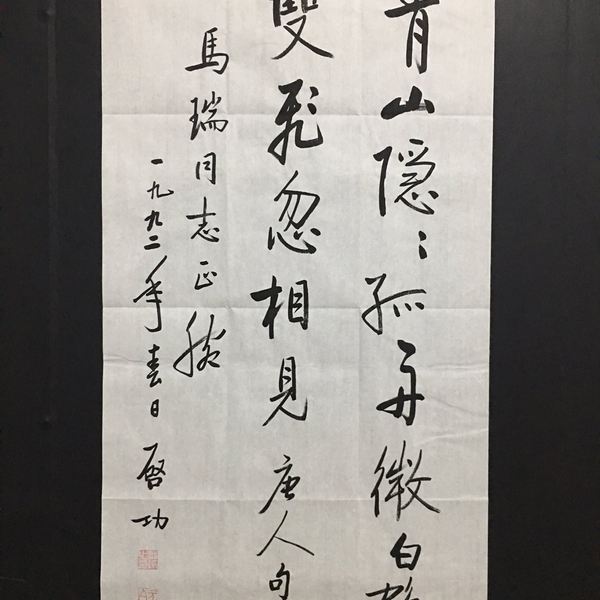 青山隱〻孤舟微白鶴
雙飛忽相見唐人句
馬瑞同志正腕
一九九二年春日啓功